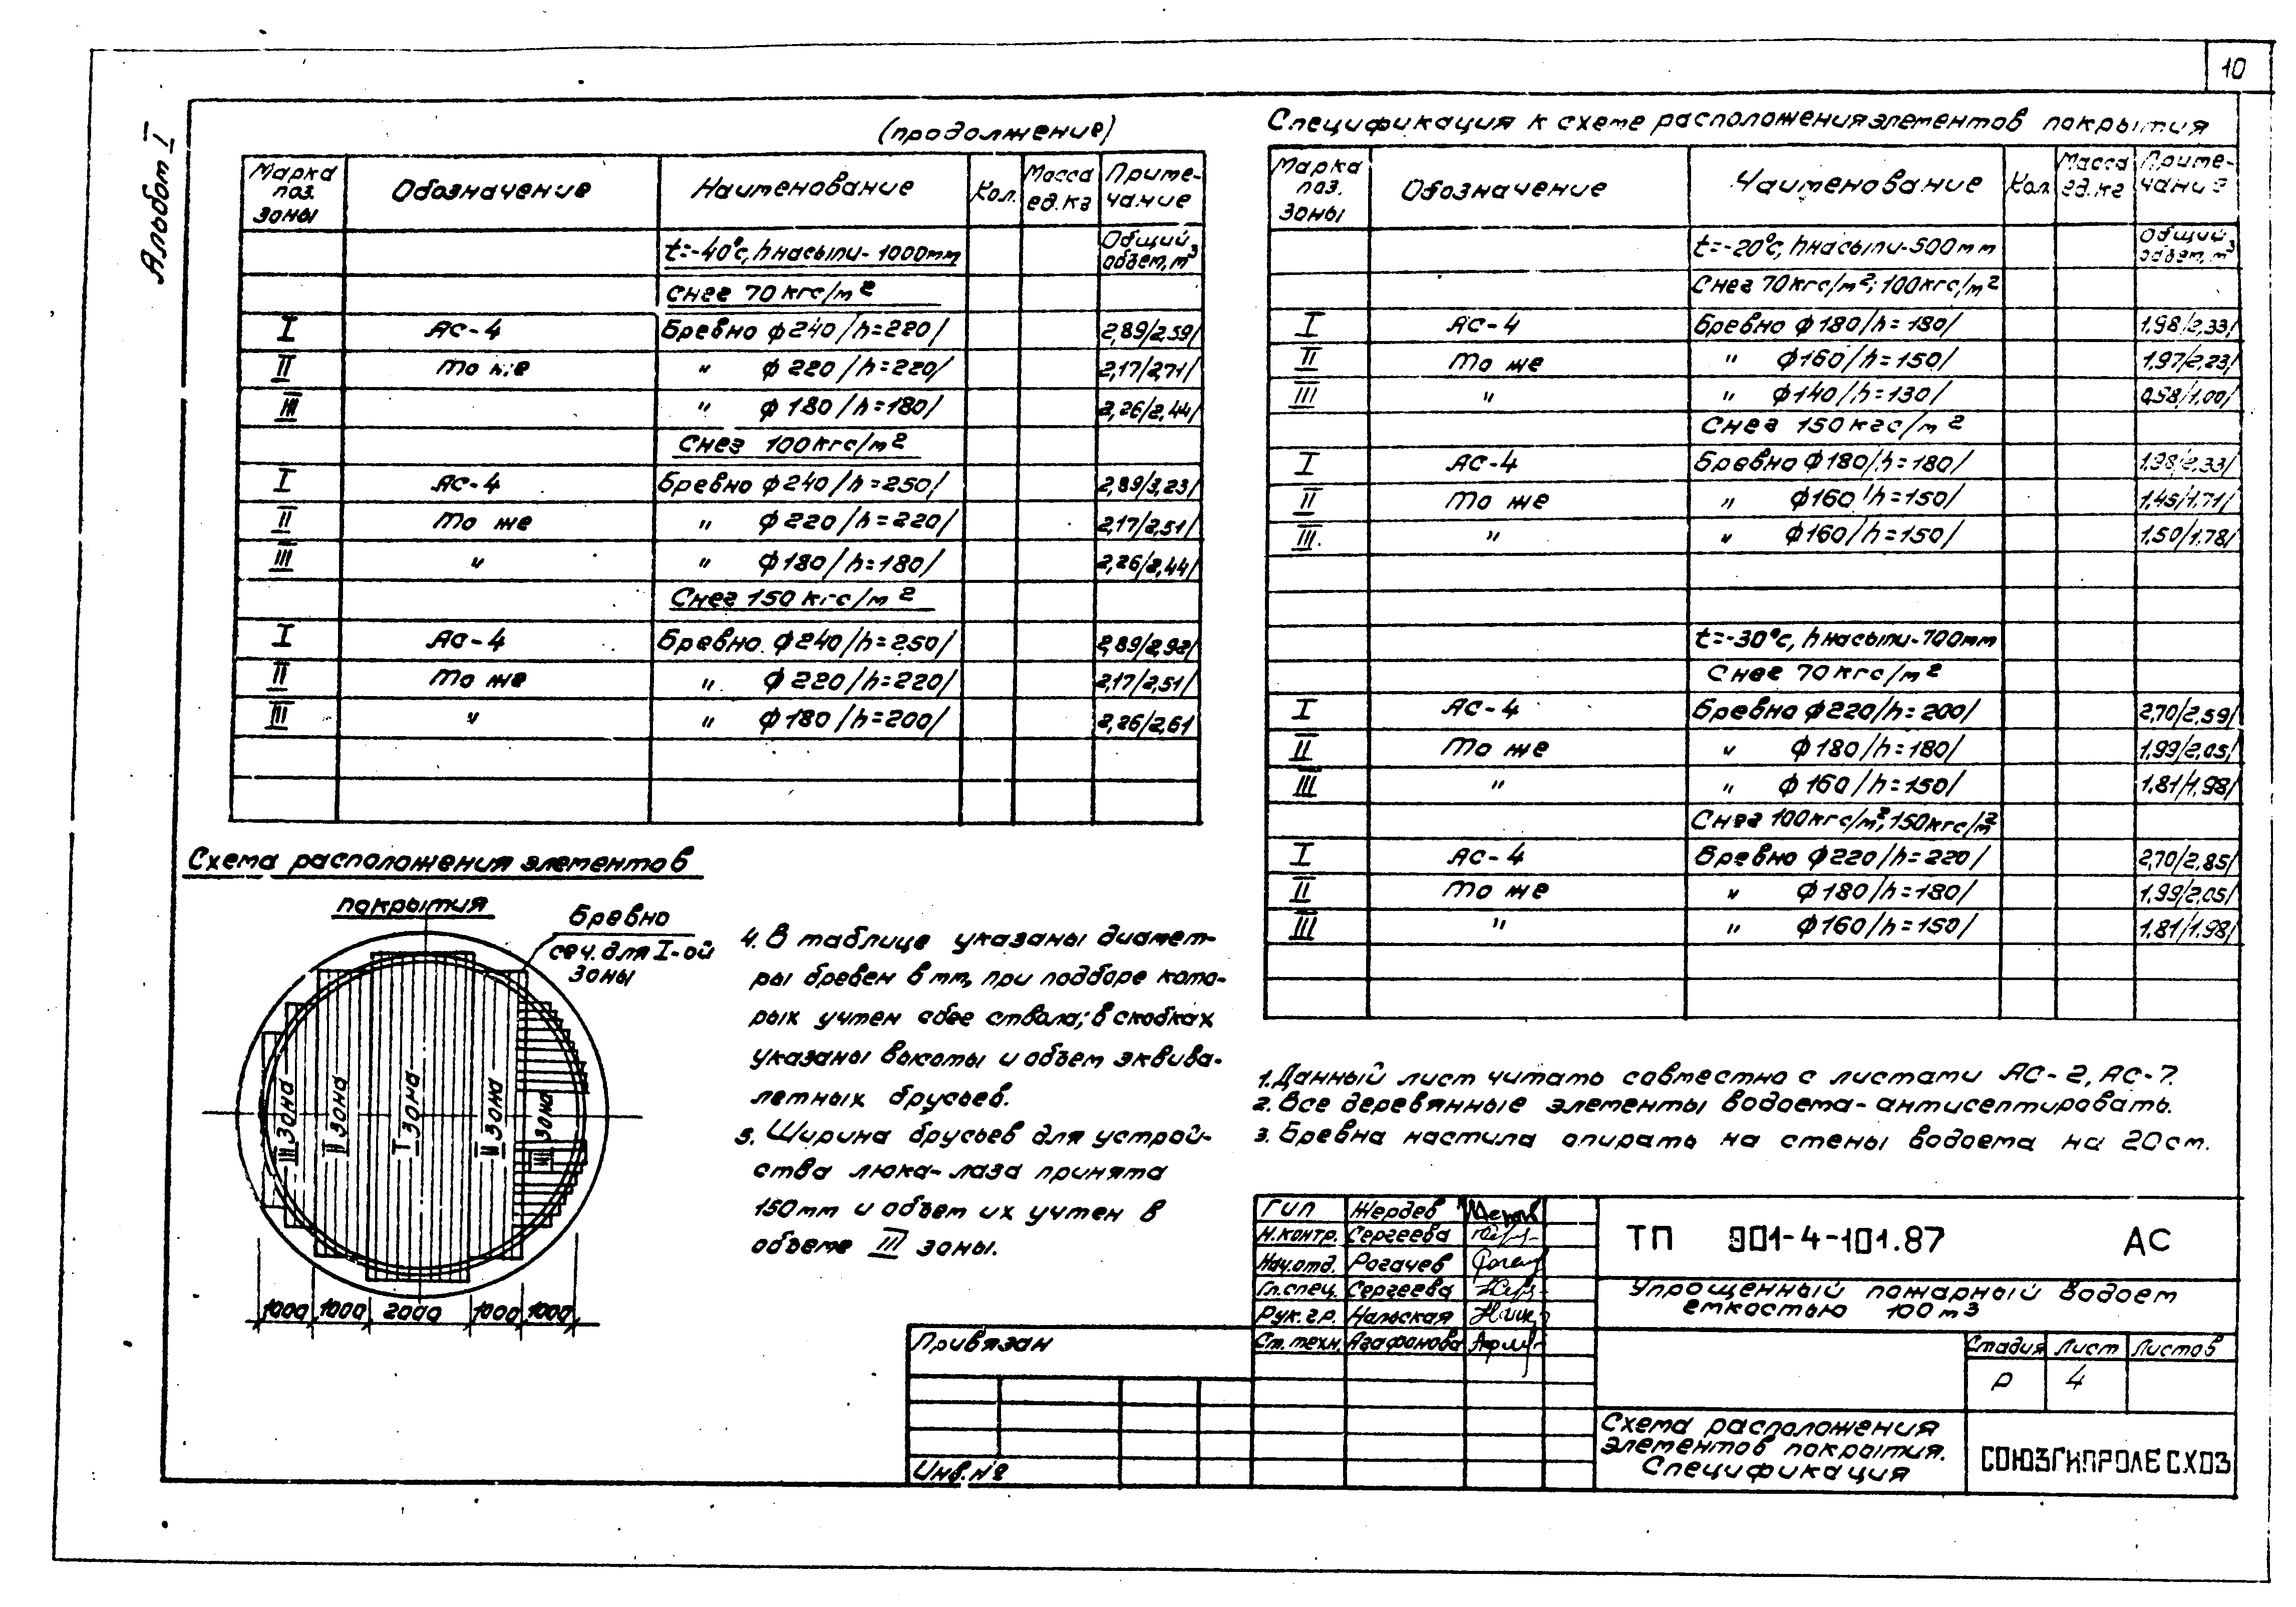 10
Альбом I
(продолжение)
Марка поз. зоны | Обозначение | Наименование | Кол. | Масса ед.кг | Примечание
t=-40°с, h насыпи-1000мм | Общий объем, м³
Снег 70 кгс/м²
I | АС-4 | Бревно ф240/h=220/ | 2,89/2,59/
II | То же | " ф220/h=220/ | 2,17/2,71/
III | " ф180/h=180/ | 2,26/2,44/
Снег 100кгс/м²
I | АС-4 | Бревно ф240/h=250/ | 2,89/3,23/
II | То же | " ф220/h=220/ | 2,17/2,51/
III | " | " ф180/h=180/ | 2,26/2,44/
Снег 150 кгс/м²
I | АС-4 | Бревно ф240/h=250/ | 2,89/2,92/
II | То же | " ф220/h=220/ | 2,17/2,51/
III | " | " ф180/h=200/ | 2,26/2,61
Спецификация к схеме расположения элементов покрытия
Марка поз. зоны | Обозначение | Наименование | Кол. | Масса ед.кг | Примечание
t=-20°с, h насыпи-500мм | Общий объем, м³
Снег 70кгс/м²; 100кгс/м²
I | АС-4 | Бревно ф180/h=180/ | 1,98/2,33/
II | То же | " ф160/h=150/ | 1,97/2,23/
III | " | " ф140/h=130/ | 0,58/1,00/
Снег 150кгс/м²
I | АС-4 | Бревно ф180/h=180/ | 1,98/2,33/
II | То же | " ф160/h=150/ | 1,45/1,71/
III | " | " ф160/h=150/ | 1,50/1,78/
t=-30°с, h насыпи-700мм
Снег 70кгс/м²
I | АС-4 | Бревно ф220/h=200/ | 2,70/2,59/
II | То же | " ф180/h=180/ | 1,99/2,05/
III | " | " ф160/h=150/ | 1,81/1,98/
Снег 100кгс/м²; 150кгс/м²
I | АС-4 | Бревно ф220/h=220/ | 2,70/2,85/
II | То же | " ф180/h=180/ | 1,99/2,05/
III | " | " ф160/h=150/ | 1,81/1,98/
Схема расположения элементов
покрытия
Бревно
сеч. для I-ой
зоны
III зона
II зона
I зона
II зона
III зона
1000 1000 2000 1000 1000
4. В таблице указаны диамет-
ры бревен в мм, при подборе кото-
рых учтен сбег ствола; в скобках
указаны высоты и объем эквива-
летных брусьев.
5. Ширина брусьев для устрой-
ства люка-лаза принята
150мм и объем их учтен в
объеме III зоны.
1. Данный лист читать совместно с листами АС-2, АС-7.
2. Все деревянные элементы водоема-антисептировать.
3. Бревна настила опирать на стены водоема на 20см.
ГИП Жердев
Н.контр. Сергеева
Нач.отд. Рогачев
Гл.спец. Сергеева
Рук.гр. Нальская
Ст.техн. Агафонова
ТП 901-4-101.87 АС
Упрощенный пожарный водоем
емкостью 100м³
Стадия Лист Листов
Р 4
Схема расположения
элементов покрытия.
Спецификация
СОЮЗГИПРОЛЕСХОЗ
Привязан
Инв.№